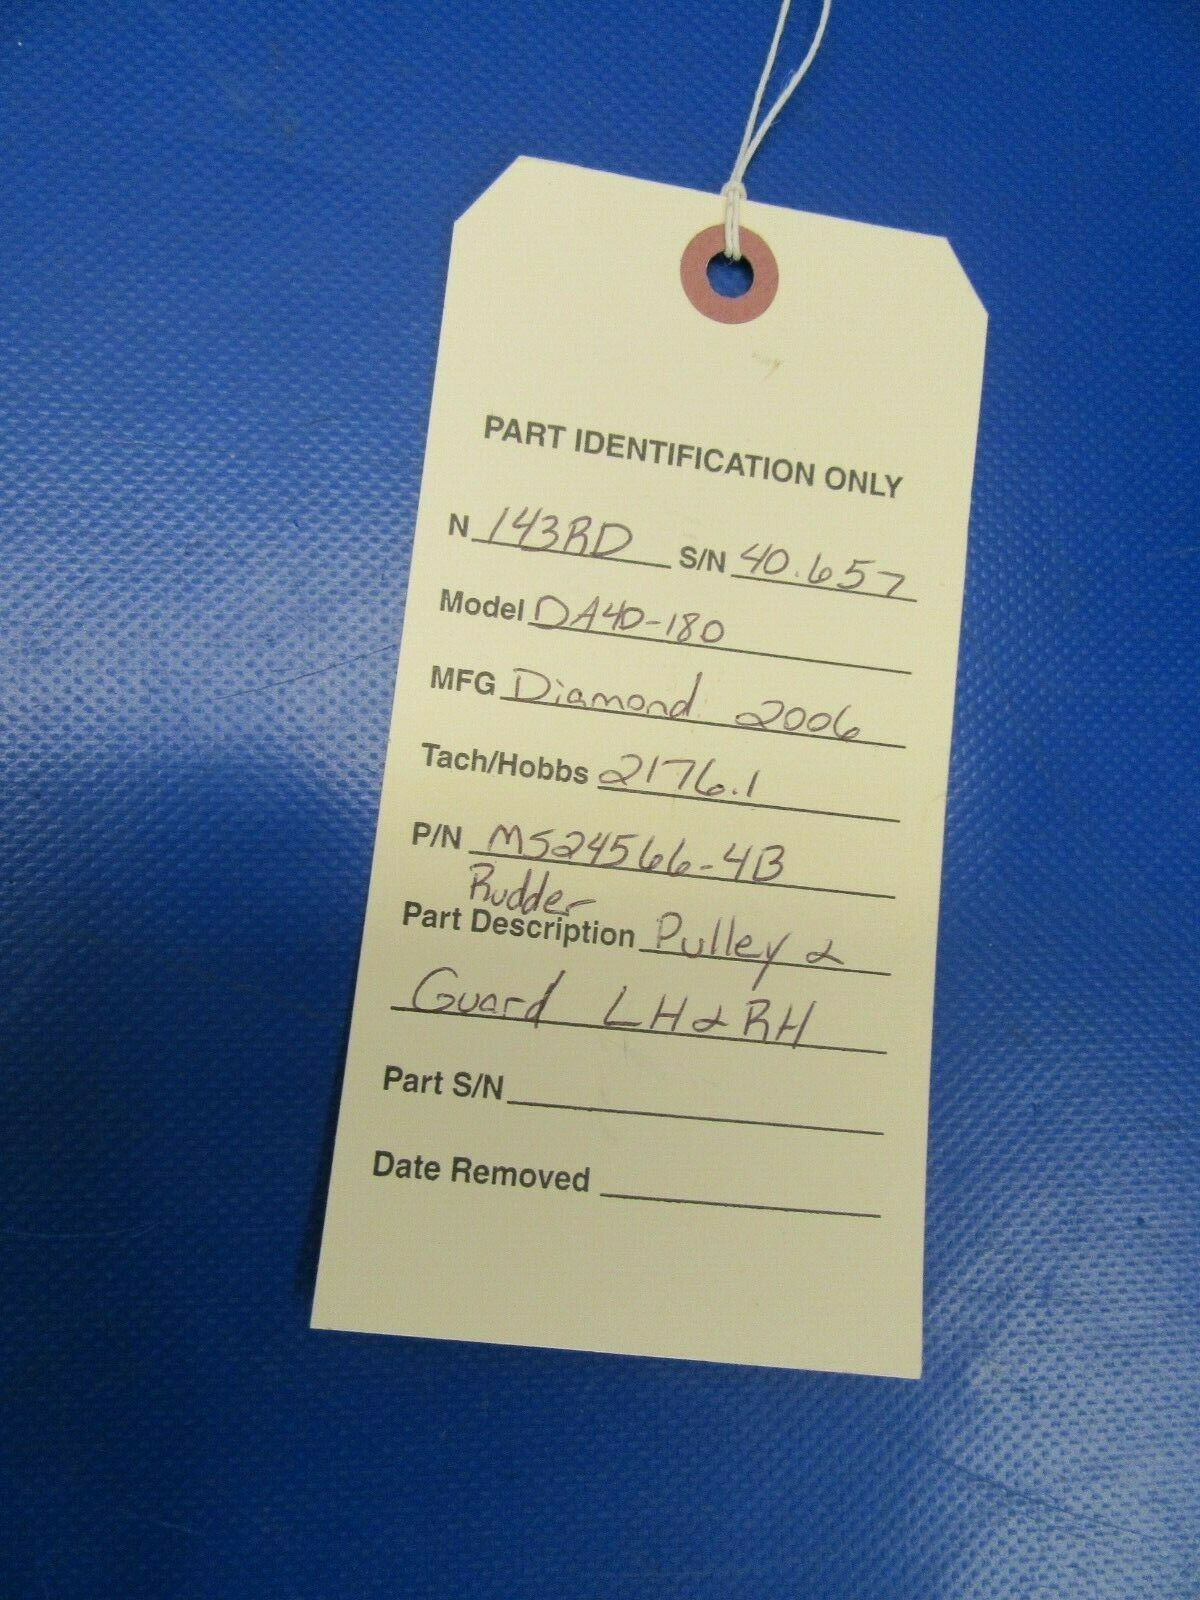 PART IDENTIFICATION ONLY
N 143RD S/N 40.657
Model DA40-180
MFG Diamond 2006
Tach/Hobbs 2176.1
P/N MS24566-4B
Rudder
Part Description Pulley &
Guard LH & RH
Part S/N
Date Removed